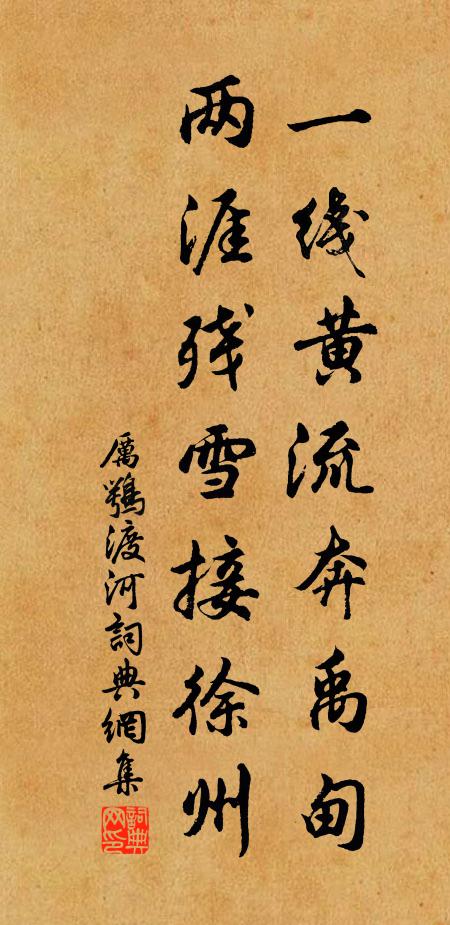 一线黄流奔禹甸
两涯残雪接徐州
厲鶚渡河詞典網集
詞典网印